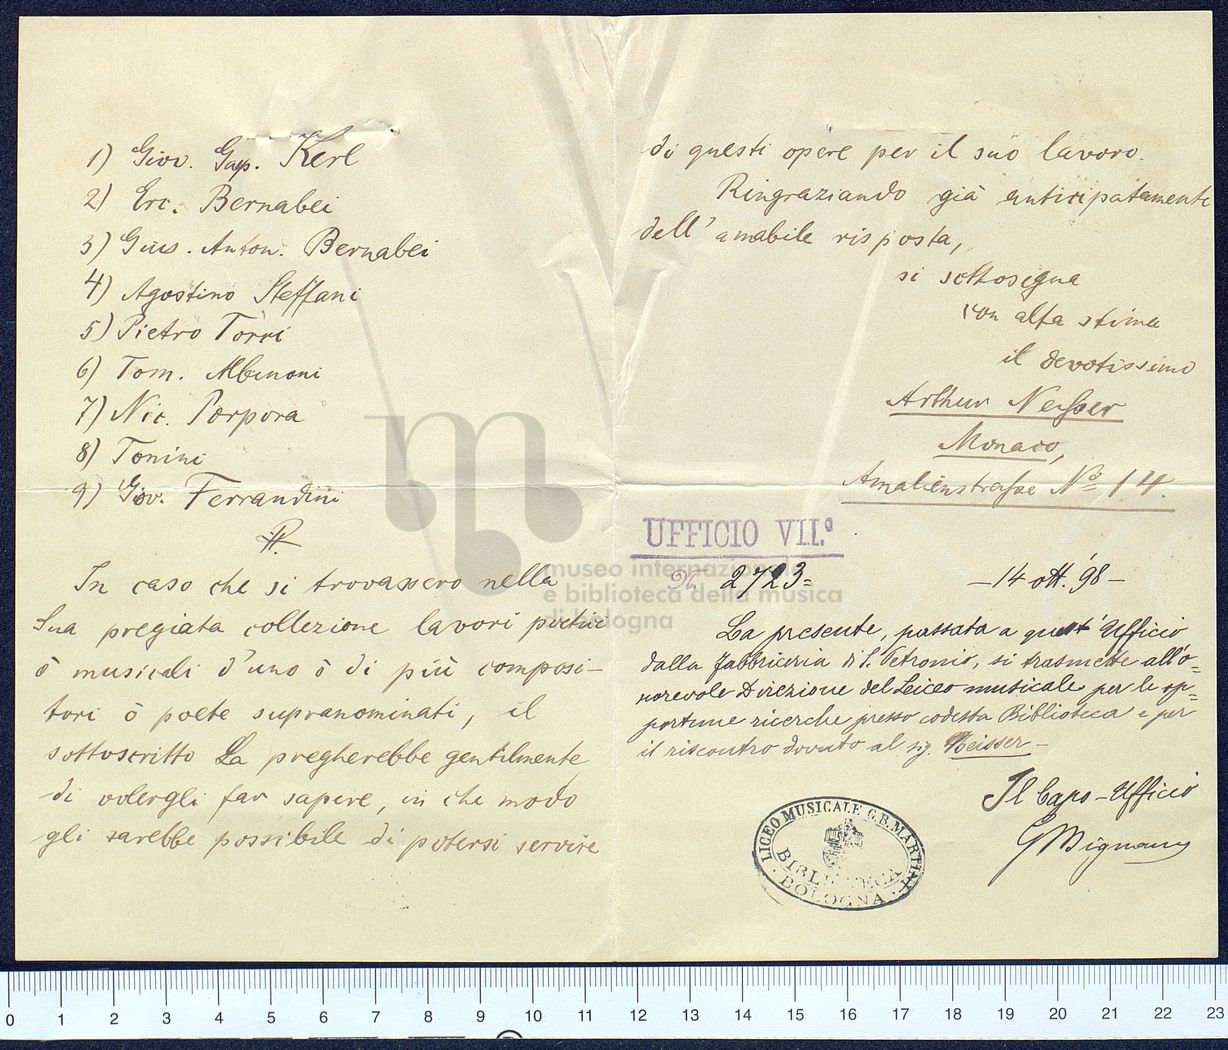 1) Giov. Gasp. Kerl
2) Erc. Bernabei
3) Gius. Anton. Bernabei
4) Agostino Steffani
5) Pietro Torri
6) Tom. Albinoni
7) Nic. Porpora
8) Tonini
9) Giov. Ferrandini
In caso che si trovassero nella
Sua pregiata collezione lavori poetici
ò musicali d'uno ò di più composi-
tori ò poete supranominati, il
sottoscritto La pregherebbe gentilmente
di volergli far sapere, in che modo
gli sarebbe possibile di potersi servire
di questi opere per il suo lavoro.
Ringraziando già anticipatamente
dell'amabile risposta,
si sottosegna
con alta stima
il devotissimo
Arthur Neisser
Monaco,
Amalienstraße No 14.
UFFICIO VII.º
N. 2723=
-14 ott. '98-
La presente, passata a quest'Ufficio
dalla fabbriceria di S. Petronio, si trasmette all'o=
norevole Direzione del Liceo musicale per le op=
portune ricerche presso codesta Biblioteca e per
il riscontro dovuto al sig. Neisser-
Il Capo-Ufficio
G Mignani
LICEO MUSICALE G.B. MARTINI
BIBLIOTECA
BOLOGNA
museo internazionale
e biblioteca della musica
di bologna
0 1 2 3 4 5 6 7 8 9 10 11 12 13 14 15 16 17 18 19 20 21 22 23